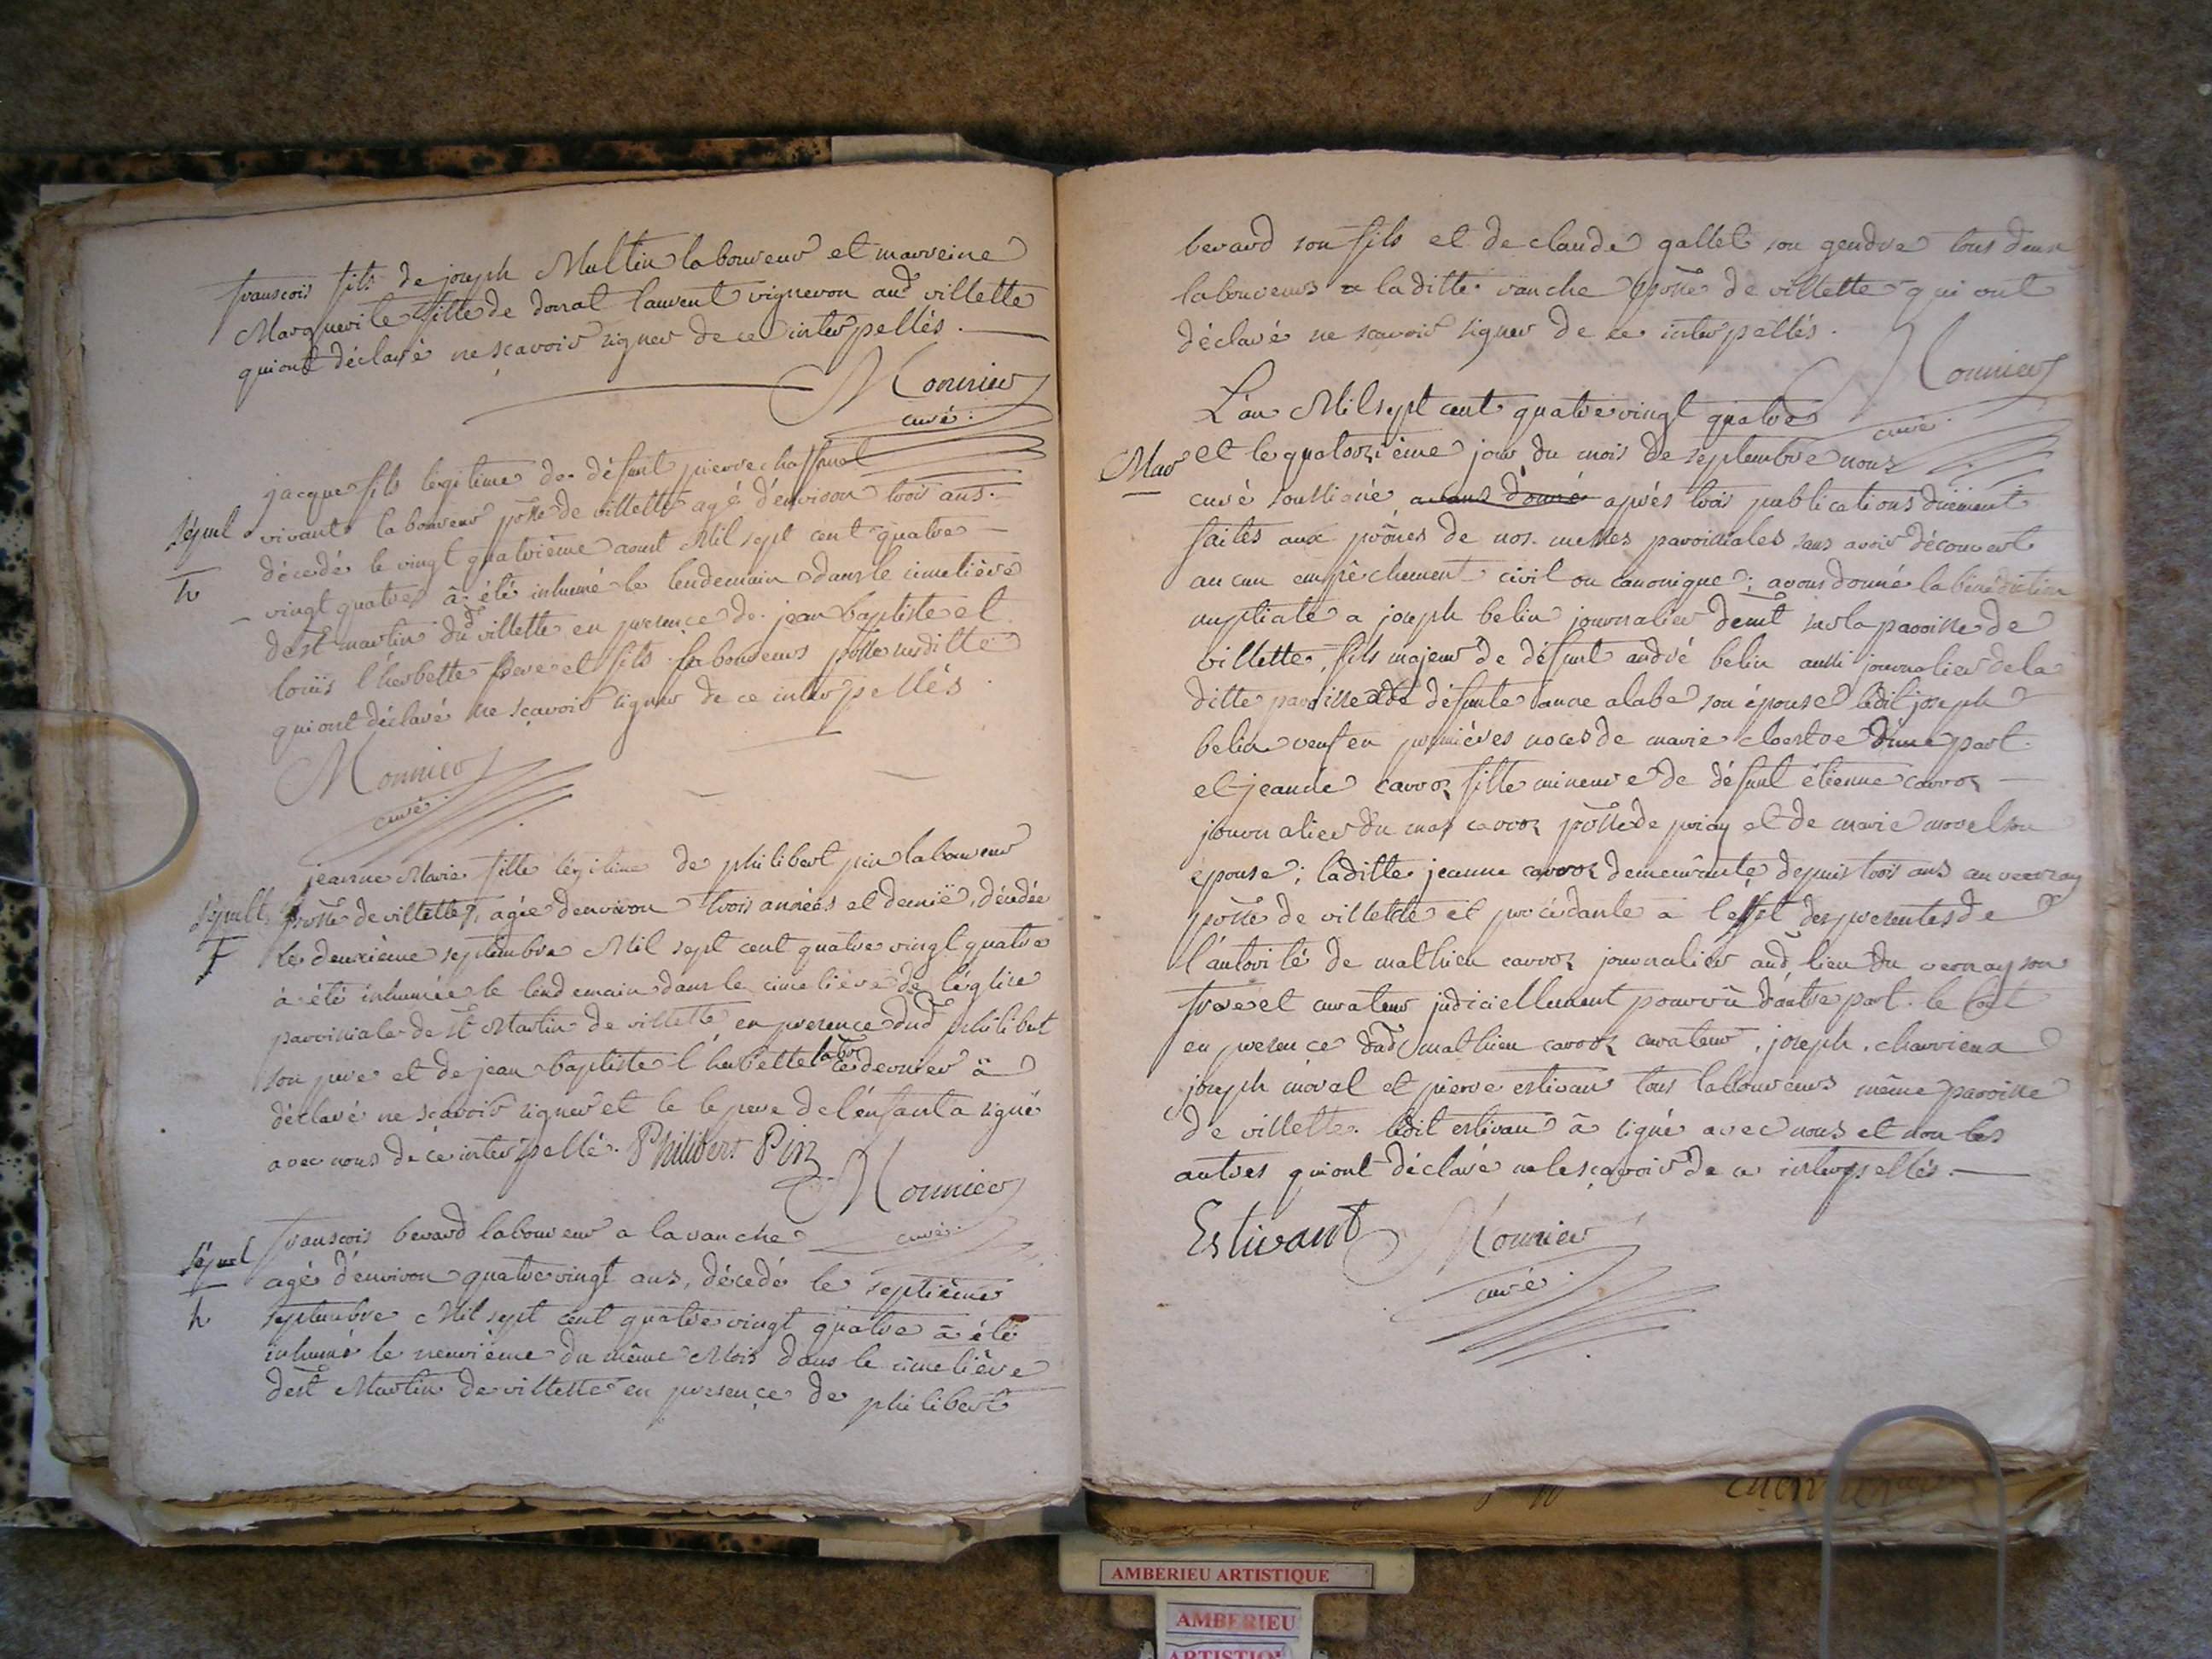 francois fils de joseph Multin laboureur et marreine
Marguerite fille de donat laurent vigneron aud villette
qui ont déclaré ne sçavoir signer de ce interpellés.
Monnier
curé.
jacque fils légitime de défunt pierre
Sépul vivant laboureur psse de villette agé d'environ trois ans.
décedé le vingt quatrième aoust Mil sept cent quatre
h vingt quatre à été inhumé le lendemain dans le cimetière
de st martin dud villette en presence de jean baptiste et
loüis l'herbette pere et fils laboureurs psse susditte
qui ont déclaré ne sçavoir signer de ce interpellés.
Monnier
curé.
jeanne Marie fille légitime de philibert pin laboureur
Sépult psse de villette, agée denviron trois années et demië, décédée
f le deuxième septembre Mil sept cent quatre vingt quatre
à été inhumée le lendemain dans le cimetière de l'église
paroissiale de st Martin de villette en presence dud philibert
son pere et de jean baptiste l'herbette labr ce dernier à
déclaré ne sçavoir signer et le le pere de l'enfant a signé
avec nous de ce interpellé. Philibert Pin
Monnier
curé.
francois berard laboureur a la ranche
Sépul agé d'environ quatre vingt ans, décedé le septième
h septembre Mil sept cent quatre vingt quatre à été
inhumé le neuvième du même Mois dans le cimetière
de st Martin de villette en presence de philibert
berard son fils et de claude gallet son gendre tous deux
laboureurs a laditte ranche psse de villette qui ont
déclaré ne sçavoir signer de ce interpellés.
Monnier
curé.
L'an Mil sept cent quatre vingt quatre
Mar et le quatorzième jour du mois de septembre nous
curé soussigné avons donné après trois publications düement
faites aux prônes de nos messes paroissiales sans avoir découvert
aucun empêchement civil ou canonique; avons donné la bénédiction
nuptiale a joseph belin journalier demt sur la paroisse de
villette, fils majeur de défunt andré belin aussi journalier de la
ditte paroisse et de défunte anne alabe son épouse ledit joseph
belin veuf en premières noces de marie d'une part
et jeanne carroz fille mineure de défunt étienne carroz
journalier du mas carroz psse de priay et de marie morel son
épouse; laditte jeanne carroz demeurante depuis trois ans au vernay
psse de villette et procédante à l'effet des presentes de
l'autorité de mathieu carroz journalier aud lieu du vernay son
frere et curateur judiciellement pourvû d'autre part. le tout
en presence dud mathieu carroz curateur, joseph charrieux
joseph moral et pierre estivan tous laboureurs même paroisse
de villette. ledit estivan à signé avec nous et non les
autres qui ont déclaré ne le sçavoir de ce interpellés.
Estivant Monnier
curé.
AMBERIEU ARTISTIQUE
AMBERIEU
ARTISTIQUE